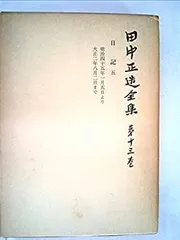 田中正造全集 第十三巻
日記 五
明治四十五年一月五日より
大正二年八月二日まで